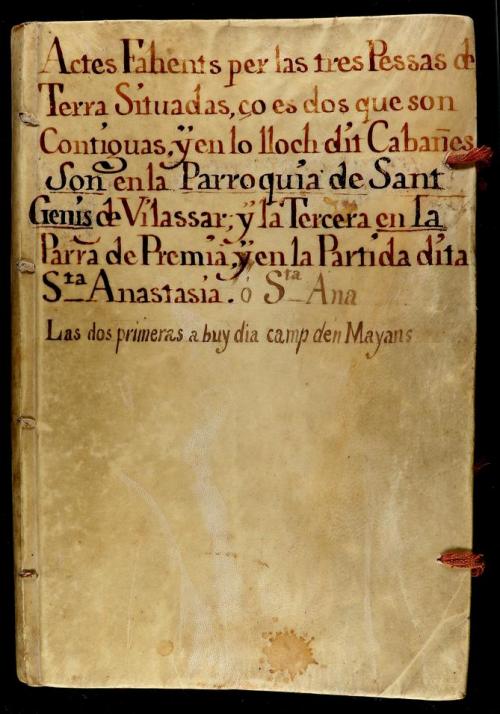 Actes Fahents per las tres Pessas de
Terra Situadas, ço es dos que son
Contiguas, ÿ en lo lloch dit Cabañes
Son en la Parroquia de Sant
Genis de Vilassar; ÿ la Tercera en La
Parra̅ de Premia, ÿ en la Partida dita
Sta Anastasia. ò Sta Ana
Las dos primeras a buy dia camp den Mayans